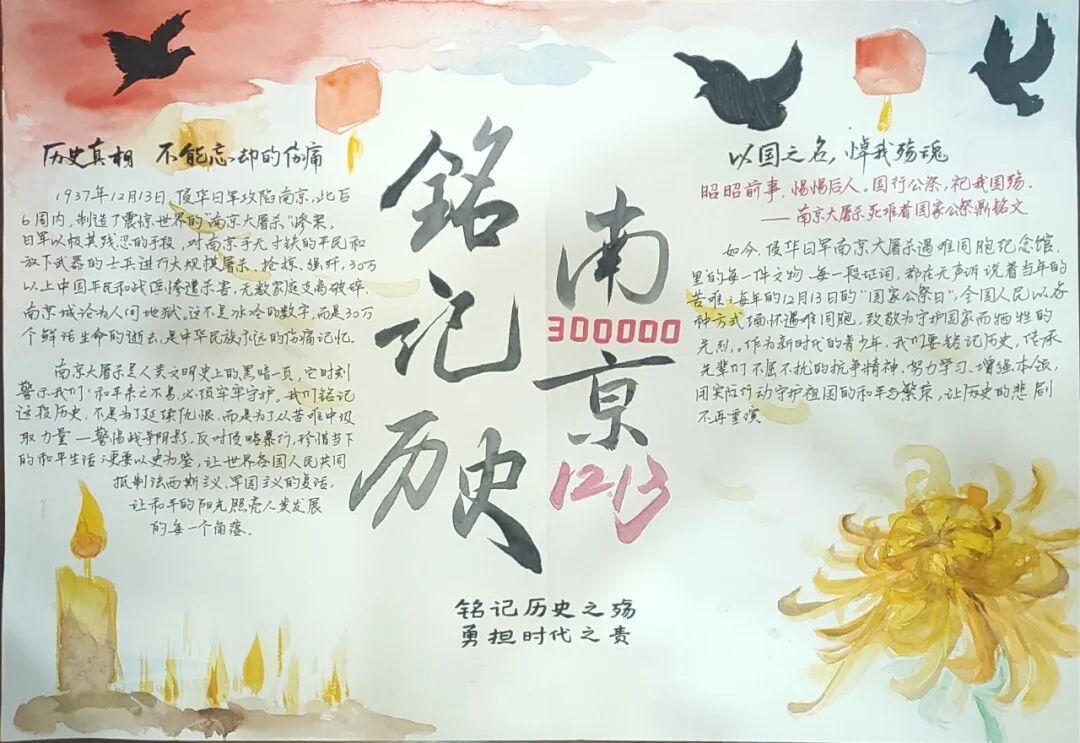 历史真相 不能忘却的伤痛
1937年12月13日,侵华日军攻陷南京,此后
6周内,制造了震惊世界的“南京大屠杀”惨案。
日军以极其残忍的手段,对南京手无寸铁的平民和
放下武器的士兵进行大规模屠杀、抢掠、强奸,30万
以上中国平民和战俘惨遭杀害,无数家庭支离破碎,
南京城沦为人间地狱。这不是冰冷的数字,而是30万
个鲜活生命的逝去,是中华民族永远的伤痛记忆。
南京大屠杀是人类文明史上的黑暗一页,它时刻
警示我们:和平来之不易,必须牢牢守护。我们铭记
这段历史,不是为了延续仇恨,而是为了从苦难中汲
取力量—警惕战争阴影,反对侵略暴行,珍惜当下
的和平生活;更要以史为鉴,让世界各国人民共同
抵制法西斯主义、军国主义的复活,
让和平的阳光照亮人类发展
的每一个角落。
铭记历史
南
300000
京
12.13
铭记历史之殇
勇担时代之责
以国之名,悼我殇魂
昭昭前事,惕惕后人。国行公祭,祀我国殇。
——南京大屠杀死难者国家公祭鼎铭文
如今,侵华日军南京大屠杀遇难同胞纪念馆,
里的每一件文物、每一段证词,都在无声诉说着当年的
苦难;每年的12月13日的“国家公祭日”,全国人民以各
种方式缅怀遇难同胞,致敬为守护国家而牺牲的
先烈。作为新时代的青少年,我们要铭记历史,传承
先辈们不屈不扰的抗争精神,努力学习、增强本领,
用实际行动守护祖国的和平与繁荣,让历史的悲剧
不再重演